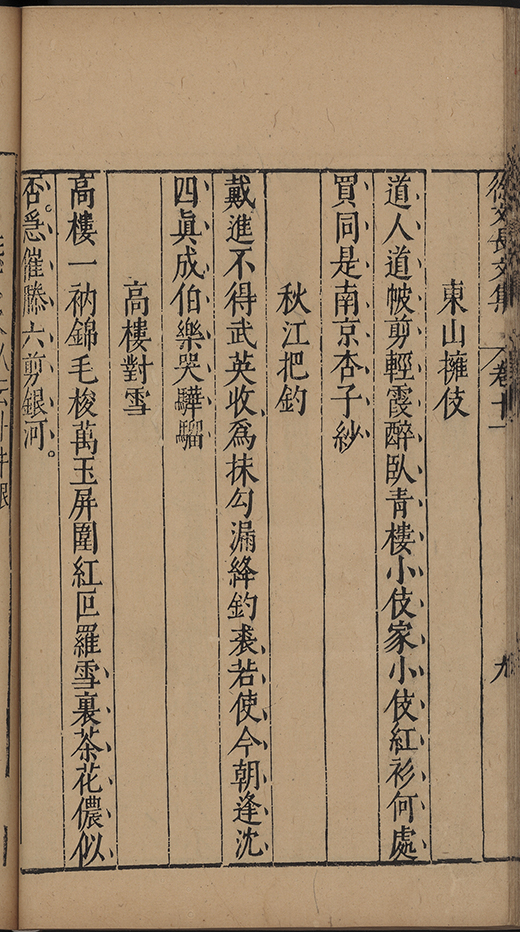 徐文長文集 卷十一 九
東山擁伎
道人道帔剪輕霞醉臥青樓小伎家小伎紅衫何處
買同是南京杏子紗
秋江把釣
戴進不得武英收爲抹勾漏絳釣裘若使今朝逢沈
四眞成伯樂哭驊騮
高樓對雪
高樓一衲錦毛梭萬玉屏圍紅叵羅雪裏茶花儂似
否急催滕六剪銀河。